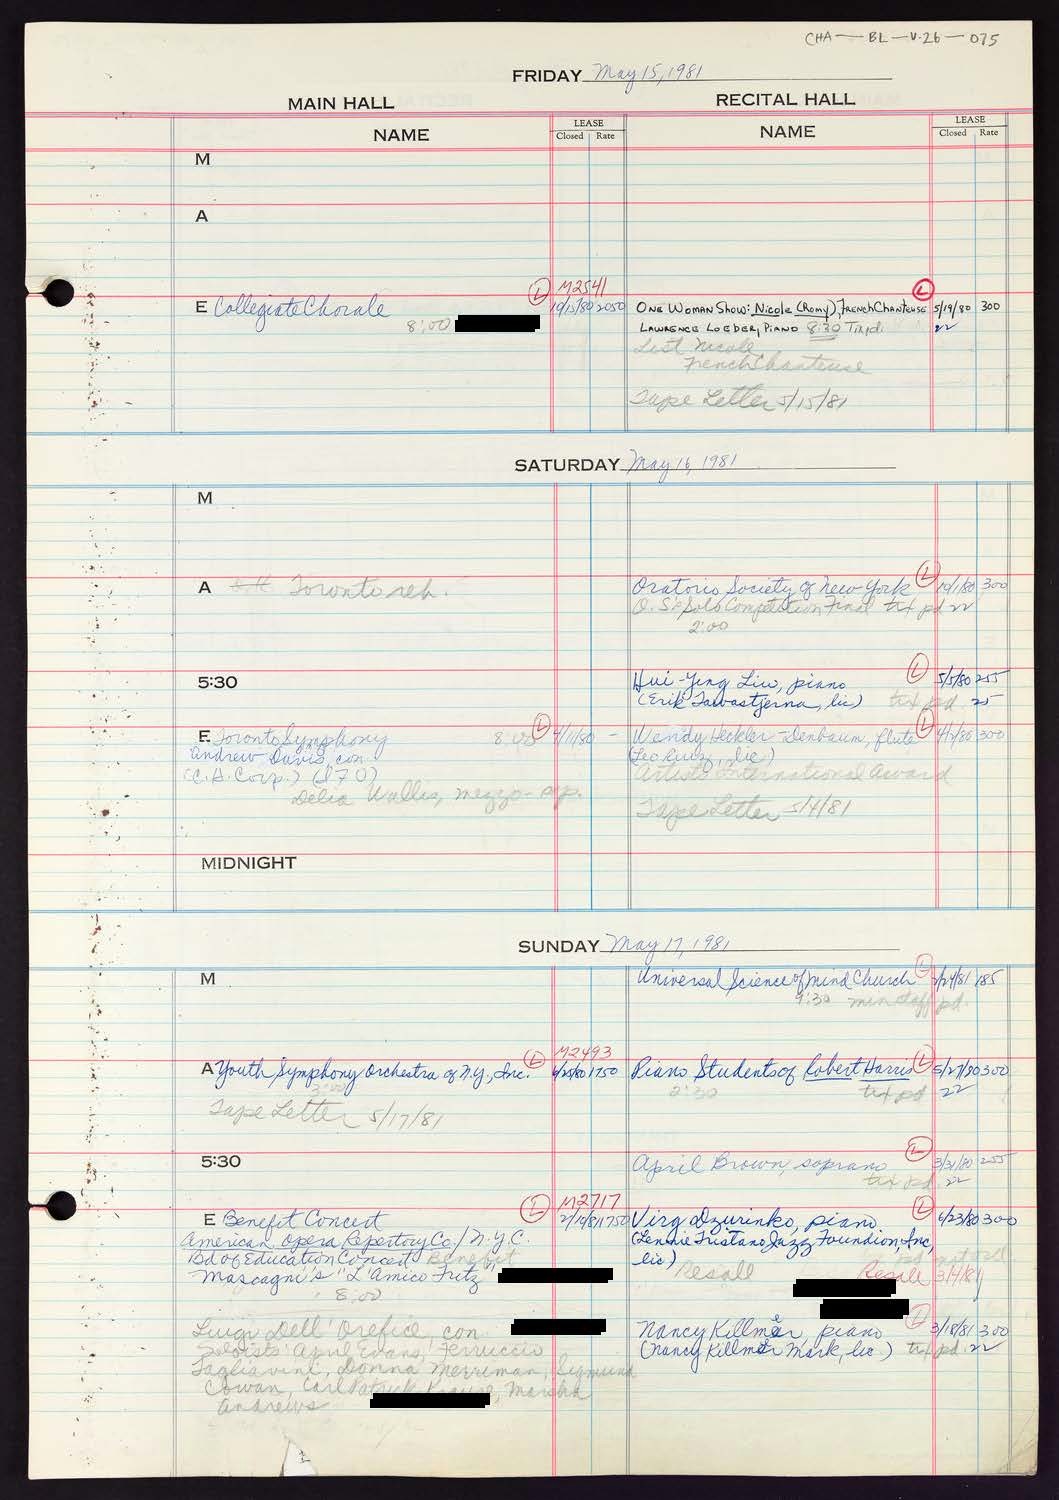 CHA — BL — V.26 — 075
FRIDAY May 15, 1981
MAIN HALL
RECITAL HALL
NAME
LEASE
Closed Rate
NAME
LEASE
Closed Rate
M
A
M2541
E Collegiate Chorale L 10/15/80 2050
8:00
L
ONE WOMAN SHOW: Nicole (Romy), FRENCH CHANTEUSE 5/19/80 300
LAWRENCE LOEBER, PIANO 8:30 Tix pd. 22
List Nicole
French Chanteuse
Tape Letter 5/15/81
SATURDAY May 16, 1981
M
A Toronto reh.
Oratorio Society of New York L 10/1/80 300
O.S. Solo Competition Final tix pd 22
2:00
5:30
Hui-Ying Liu, piano L 5/5/80 255
(Erik Tawastjerna, lic) tix pd. 25
E Toronto Symphony 8:00 L 4/1/80 –
Andrew Davis, con.
(C.H. Corp.) (I70)
Delia Wallis, mezzo-sop.
Wendy Heckler-Denbaum, flute L 4/1/80 300
(Leo Ruiz, lic)
Artists International Award
Tape Letter 5/4/81
MIDNIGHT
SUNDAY May 17, 1981
M
Universal Science of Mind Church L 2/24/81 185
9:30 min staff pd.
M2493
A Youth Symphony Orchestra of N.Y., Inc. L 6/25/80 1750
3:00
Tape Letter 5/17/81
Piano Students of Robert Harris L 5/27/80 300
2:30 tix pd 22
5:30
April Brown, soprano L 3/31/80 255
tix pd. 22
M2717
E Benefit Concert L 2/19/81 1750
American Opera Repertory Co./N.Y.C.
Bd of Education Concert Benefit
Mascagni's "L'Amico Fritz"
8:00
Luigi Dell'Orefice, con
Soloists April Evans, Ferruccio
Tagliavini, Donna Merriman, Sigmund
Cowan, Carl Patrick Krause, Marsha
Andrews
Virg Dzurinko, piano L 6/23/80 300
(Lennie Tristano Jazz Foundion, Inc,
lic) Resale
Resale 3/4/81
Nancy Killmer, piano L 3/18/81 300
(Nancy Killmer Mark, lic) tix pd. 22